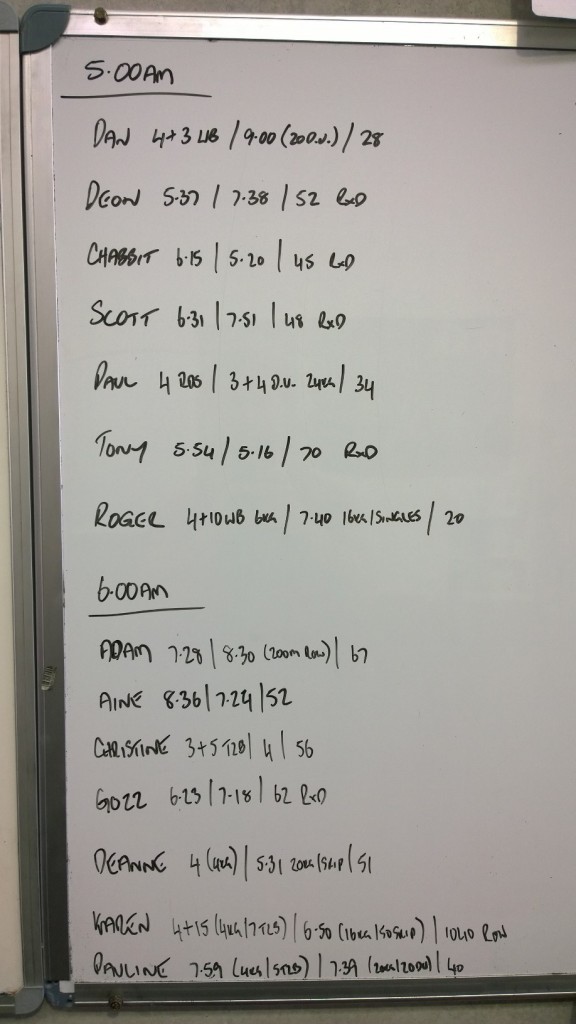 5.00AM
DAN 4+3 WB / 9.00 (20 D.U.) / 28
DEON 5.37 / 7.38 / 52 RxD
CHABBIT 6.15 | 5.20 | 45 RxD
SCOTT 6.31 | 7.51 | 48 RxD
PAUL 4 RDS | 3+4 D.U. 24KG | 34
TONY 5.54 / 5.16 / 70 RxD
ROGER 4+10WB 6KG / 7.40 16KG/SINGLES / 20
6.00AM
ADAM 7.28 | 8.30 (200m ROW) | 67
AINE 8.36 | 7.24 | 52
CHRISTINE 3+5 T2B | 4 | 56
GOZZ 6.23 | 7.18 | 62 RxD
DEANNE 4 (4KG) | 5.31 20KG/SKIP | 51
KAREN 4+15 (4KG/7T2B) | 6.50 (16KG/50SKIP) | 1040 ROW
PAULINE 7.59 (4KG/5T2B) | 7.39 (20KG/20DU) | 40